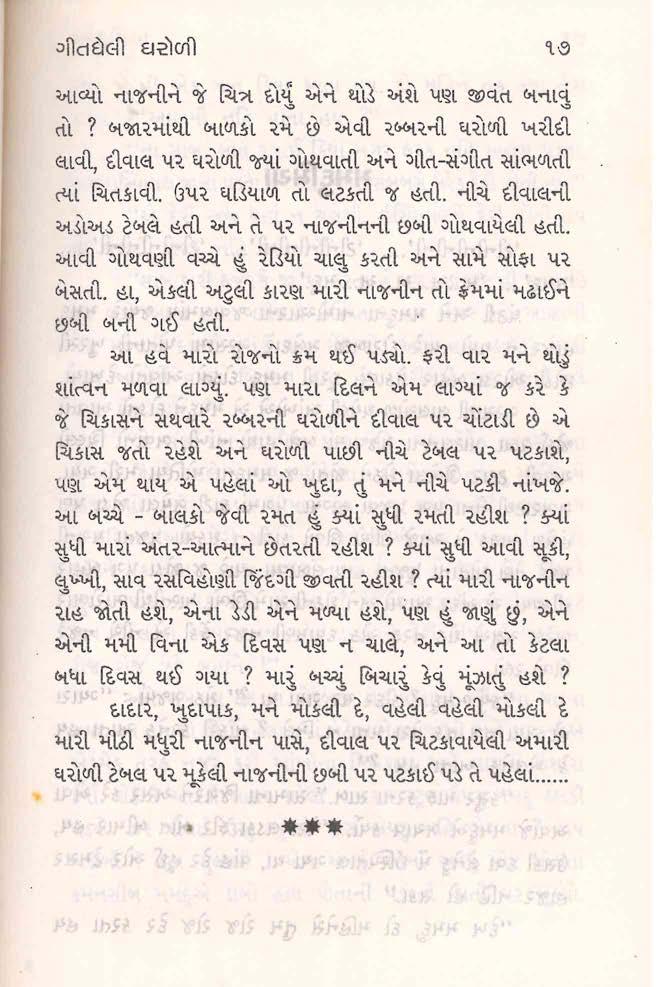 ગીતઘેલી ઘરોળી ૧૭
આવ્યો નાજનીને જે ચિત્ર દોર્યું એને થોડે અંશે પણ જીવંત બનાવું
તો ? બજારમાંથી બાળકો રમે છે એવી રબ્બરની ઘરોળી ખરીદી
લાવી, દીવાલ પર ઘરોળી જ્યાં ગોથવાતી અને ગીત-સંગીત સાંભળતી
ત્યાં ચિતકાવી. ઉપર ઘડિયાળ તો લટકતી જ હતી. નીચે દીવાલની
અડોઅડ ટેબલે હતી અને તે પર નાજનીનની છબી ગોથવાયેલી હતી.
આવી ગોથવણી વચ્ચે હું રેડિયો ચાલુ કરતી અને સામે સોફા પર
બેસતી. હા, એકલી અટુલી કારણ મારી નાજનીન તો ફ્રેમમાં મઢાઈને
છબી બની ગઈ હતી.
આ હવે મારો રોજનો ક્રમ થઈ પડ્યો. ફરી વાર મને થોડું
શાંત્વન મળવા લાગ્યું. પણ મારા દિલને એમ લાગ્યાં જ કરે કે
જે ચિકાસને સથવારે રબ્બરની ઘરોળીને દીવાલ પર ચોંટાડી છે એ
ચિકાસ જતો રહેશે અને ઘરોળી પાછી નીચે ટેબલ પર પટકાશે,
પણ એમ થાય એ પહેલાં ઓ ખુદા, તું મને નીચે પટકી નાંખજે.
આ બચ્ચે - બાલકો જેવી રમત હું ક્યાં સુધી રમતી રહીશ ? ક્યાં
સુધી મારાં અંતર-આત્માને છેતરતી રહીશ ? ક્યાં સુધી આવી સૂકી,
લુખ્ખી, સાવ રસવિહોણી જિંદગી જીવતી રહીશ ? ત્યાં મારી નાજનીન
રાહ જોતી હશે, એના ડેડી એને મળ્યા હશે, પણ હું જાણું છું, એને
એની મમી વિના એક દિવસ પણ ન ચાલે, અને આ તો કેટલા
બધા દિવસ થઈ ગયા ? મારું બચ્ચું બિચારું કેવું મૂંઝાતું હશે ?
દાદાર, ખુદાપાક, મને મોકલી દે, વહેલી વહેલી મોકલી દે
મારી મીઠી મધુરી નાજનીન પાસે, દીવાલ પર ચિટકાવાયેલી અમારી
ઘરોળી ટેબલ પર મૂકેલી નાજનીની છબી પર પટકાઈ પડે તે પહેલાં......
***